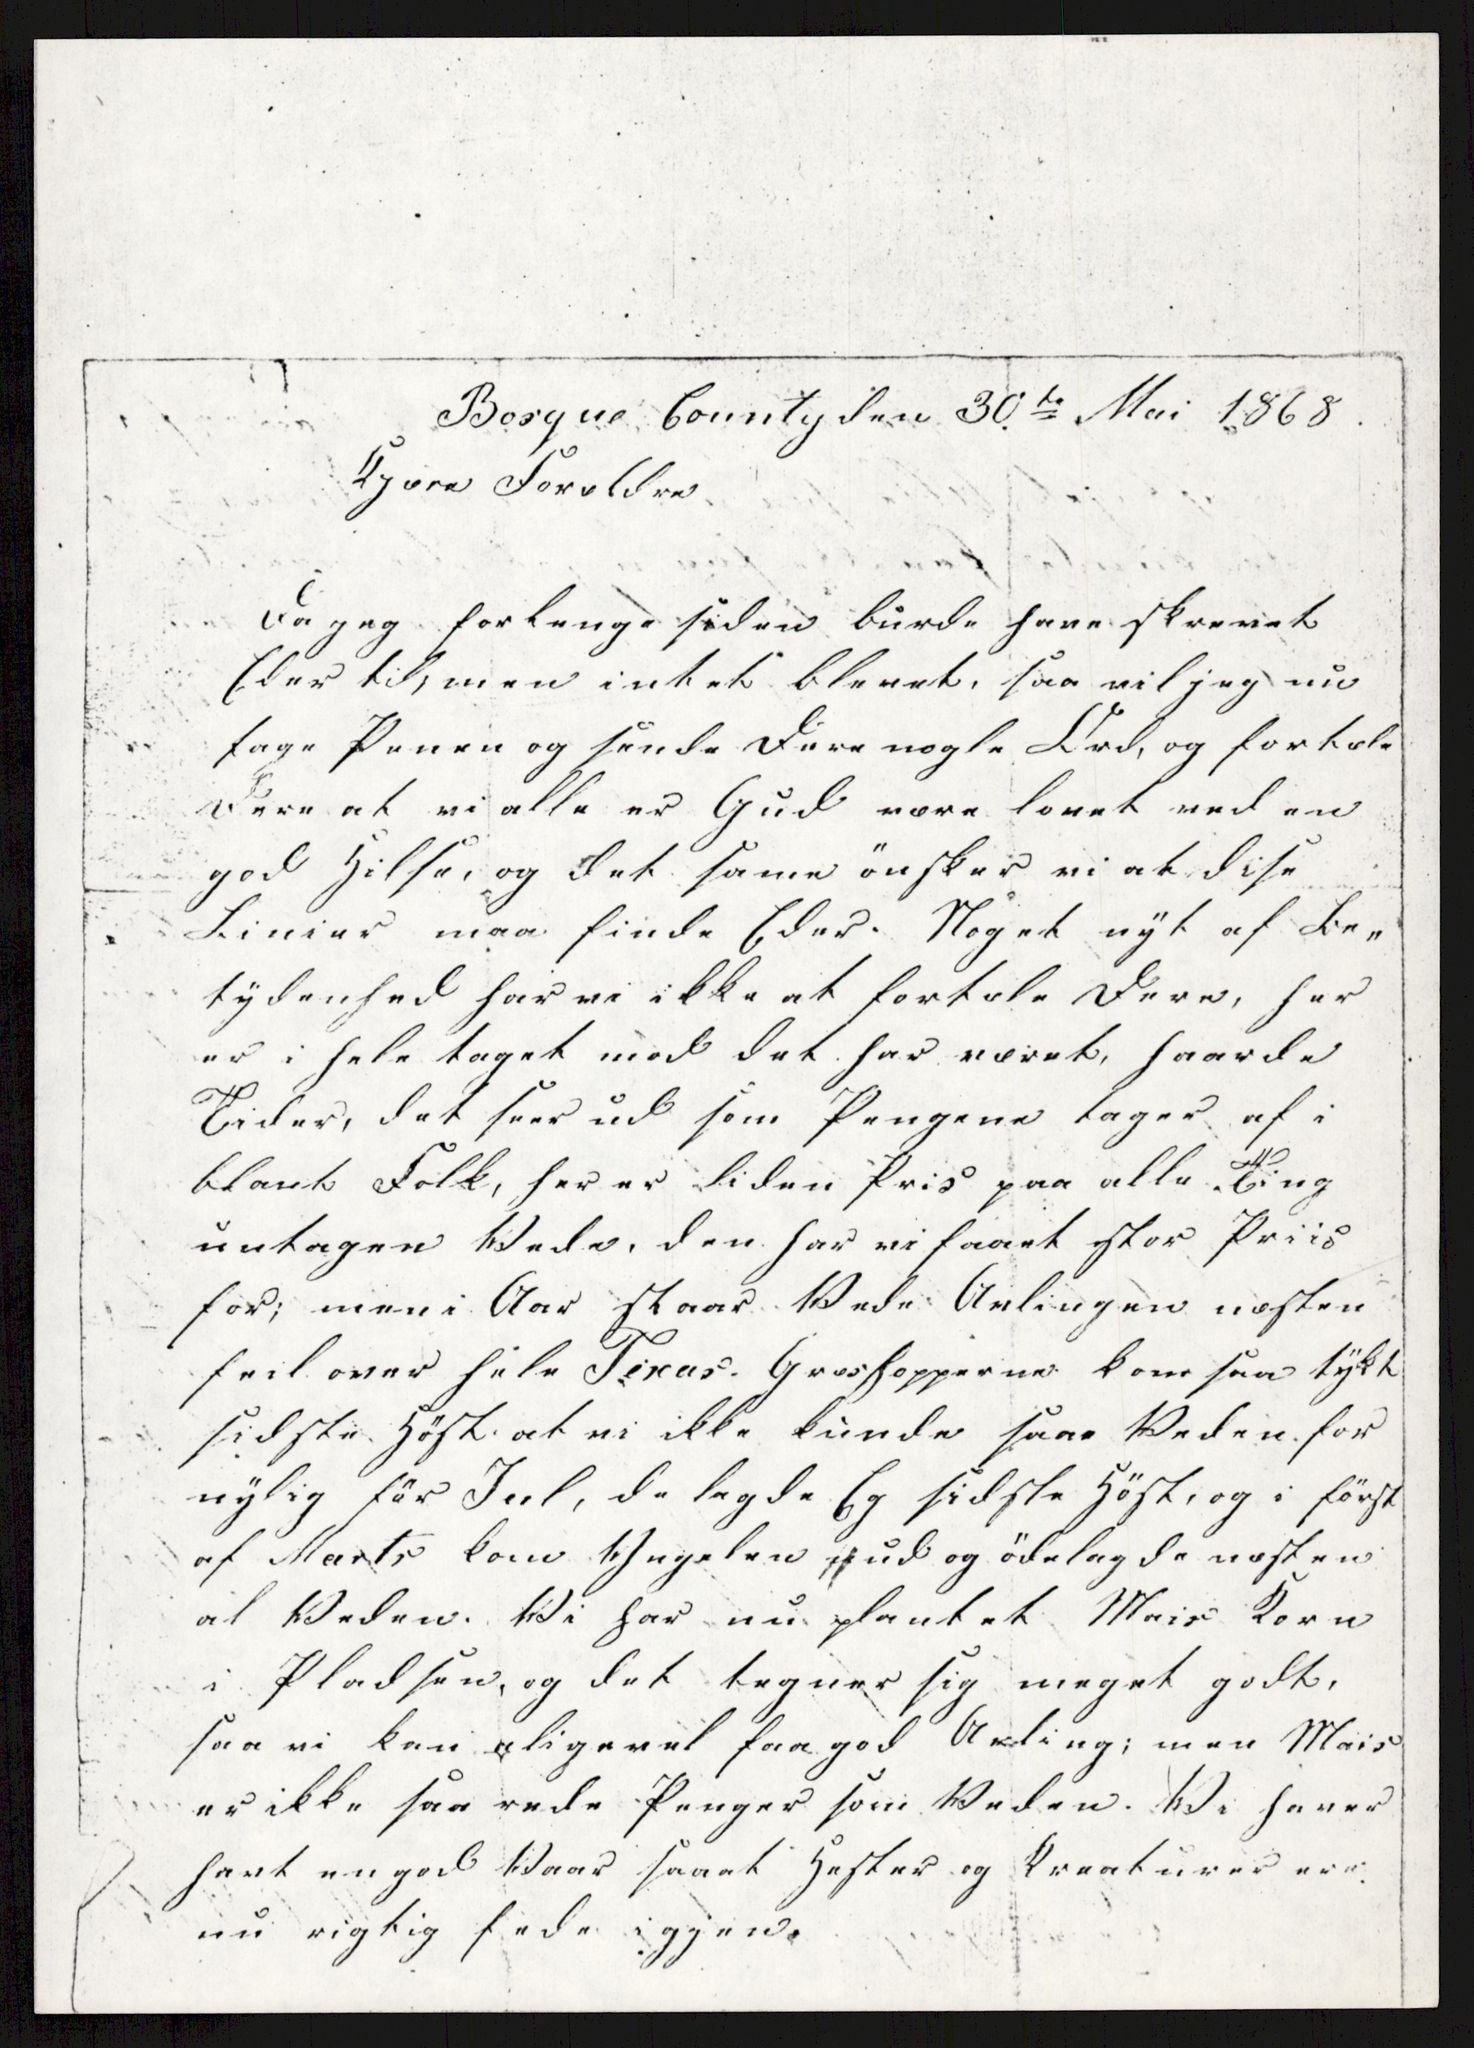 Bosque County den 30te Mai 1868.
Kjære Forældre
Da jeg forlenge siden burde have skrevet
Eder til, men intet blevet, saa vil jeg nu
tage Penen og sende Dere nogle Ord, og fortæle
Dere at vi alle er Gud være lovet ved en
god Hilse, og det same önsker vi at dise
Linier maa finde Eder. Noget nyt af Be„
tydenhed har vi ikke at fortæle Dere, her
er i hele taget mod det har været, haarde
Tider, det seer ud som Pengene tager af i
blant Folk, her er liden Pris paa alle Ting
untagen Vede, den har vi faaet stor Priis
for; men i Aar staar Vede Avlingen næsten
feil over hele Texas. Græshopperne kom saa tykt
sidste Höst at vi ikke kunde saae Veden for
nylig för Jul, de legde Eg sidste Höst, og i först
af Marts kom Yngelen ud og ödelagde næsten
al Veden. Vi har nu plantet Mais Korn
i Pladsen, og det tegner sig meget godt,
saa vi kan aligevel faa god Avling; men Mais
er ikke saa rede Penger som Veden. Vi haver
havt en god Vaar saaat Hester og Kreaturer ere
nu rigtig fede igjen.